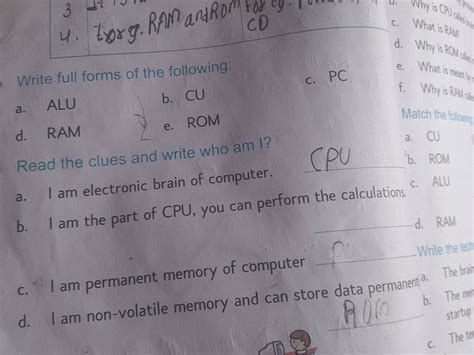 3
4. for eg. RAM and ROM for eg.
CD
Write full forms of the following:
a. ALU
b. CU
c. PC
d. RAM
e. ROM
Read the clues and write who am I?
a. I am electronic brain of computer. CPU
b. I am the part of CPU, you can perform the calculations.
c. I am permanent memory of computer
d. I am non-volatile memory and can store data permanent
ROM
b. Why is CPU called
c. What is RAM
d. Why is ROM called
e. What is meant
f. Why is RAM
Match the following
a. CU
b. ROM
c. ALU
d. RAM
Write the
a. The brain
b. The
startup
c. The